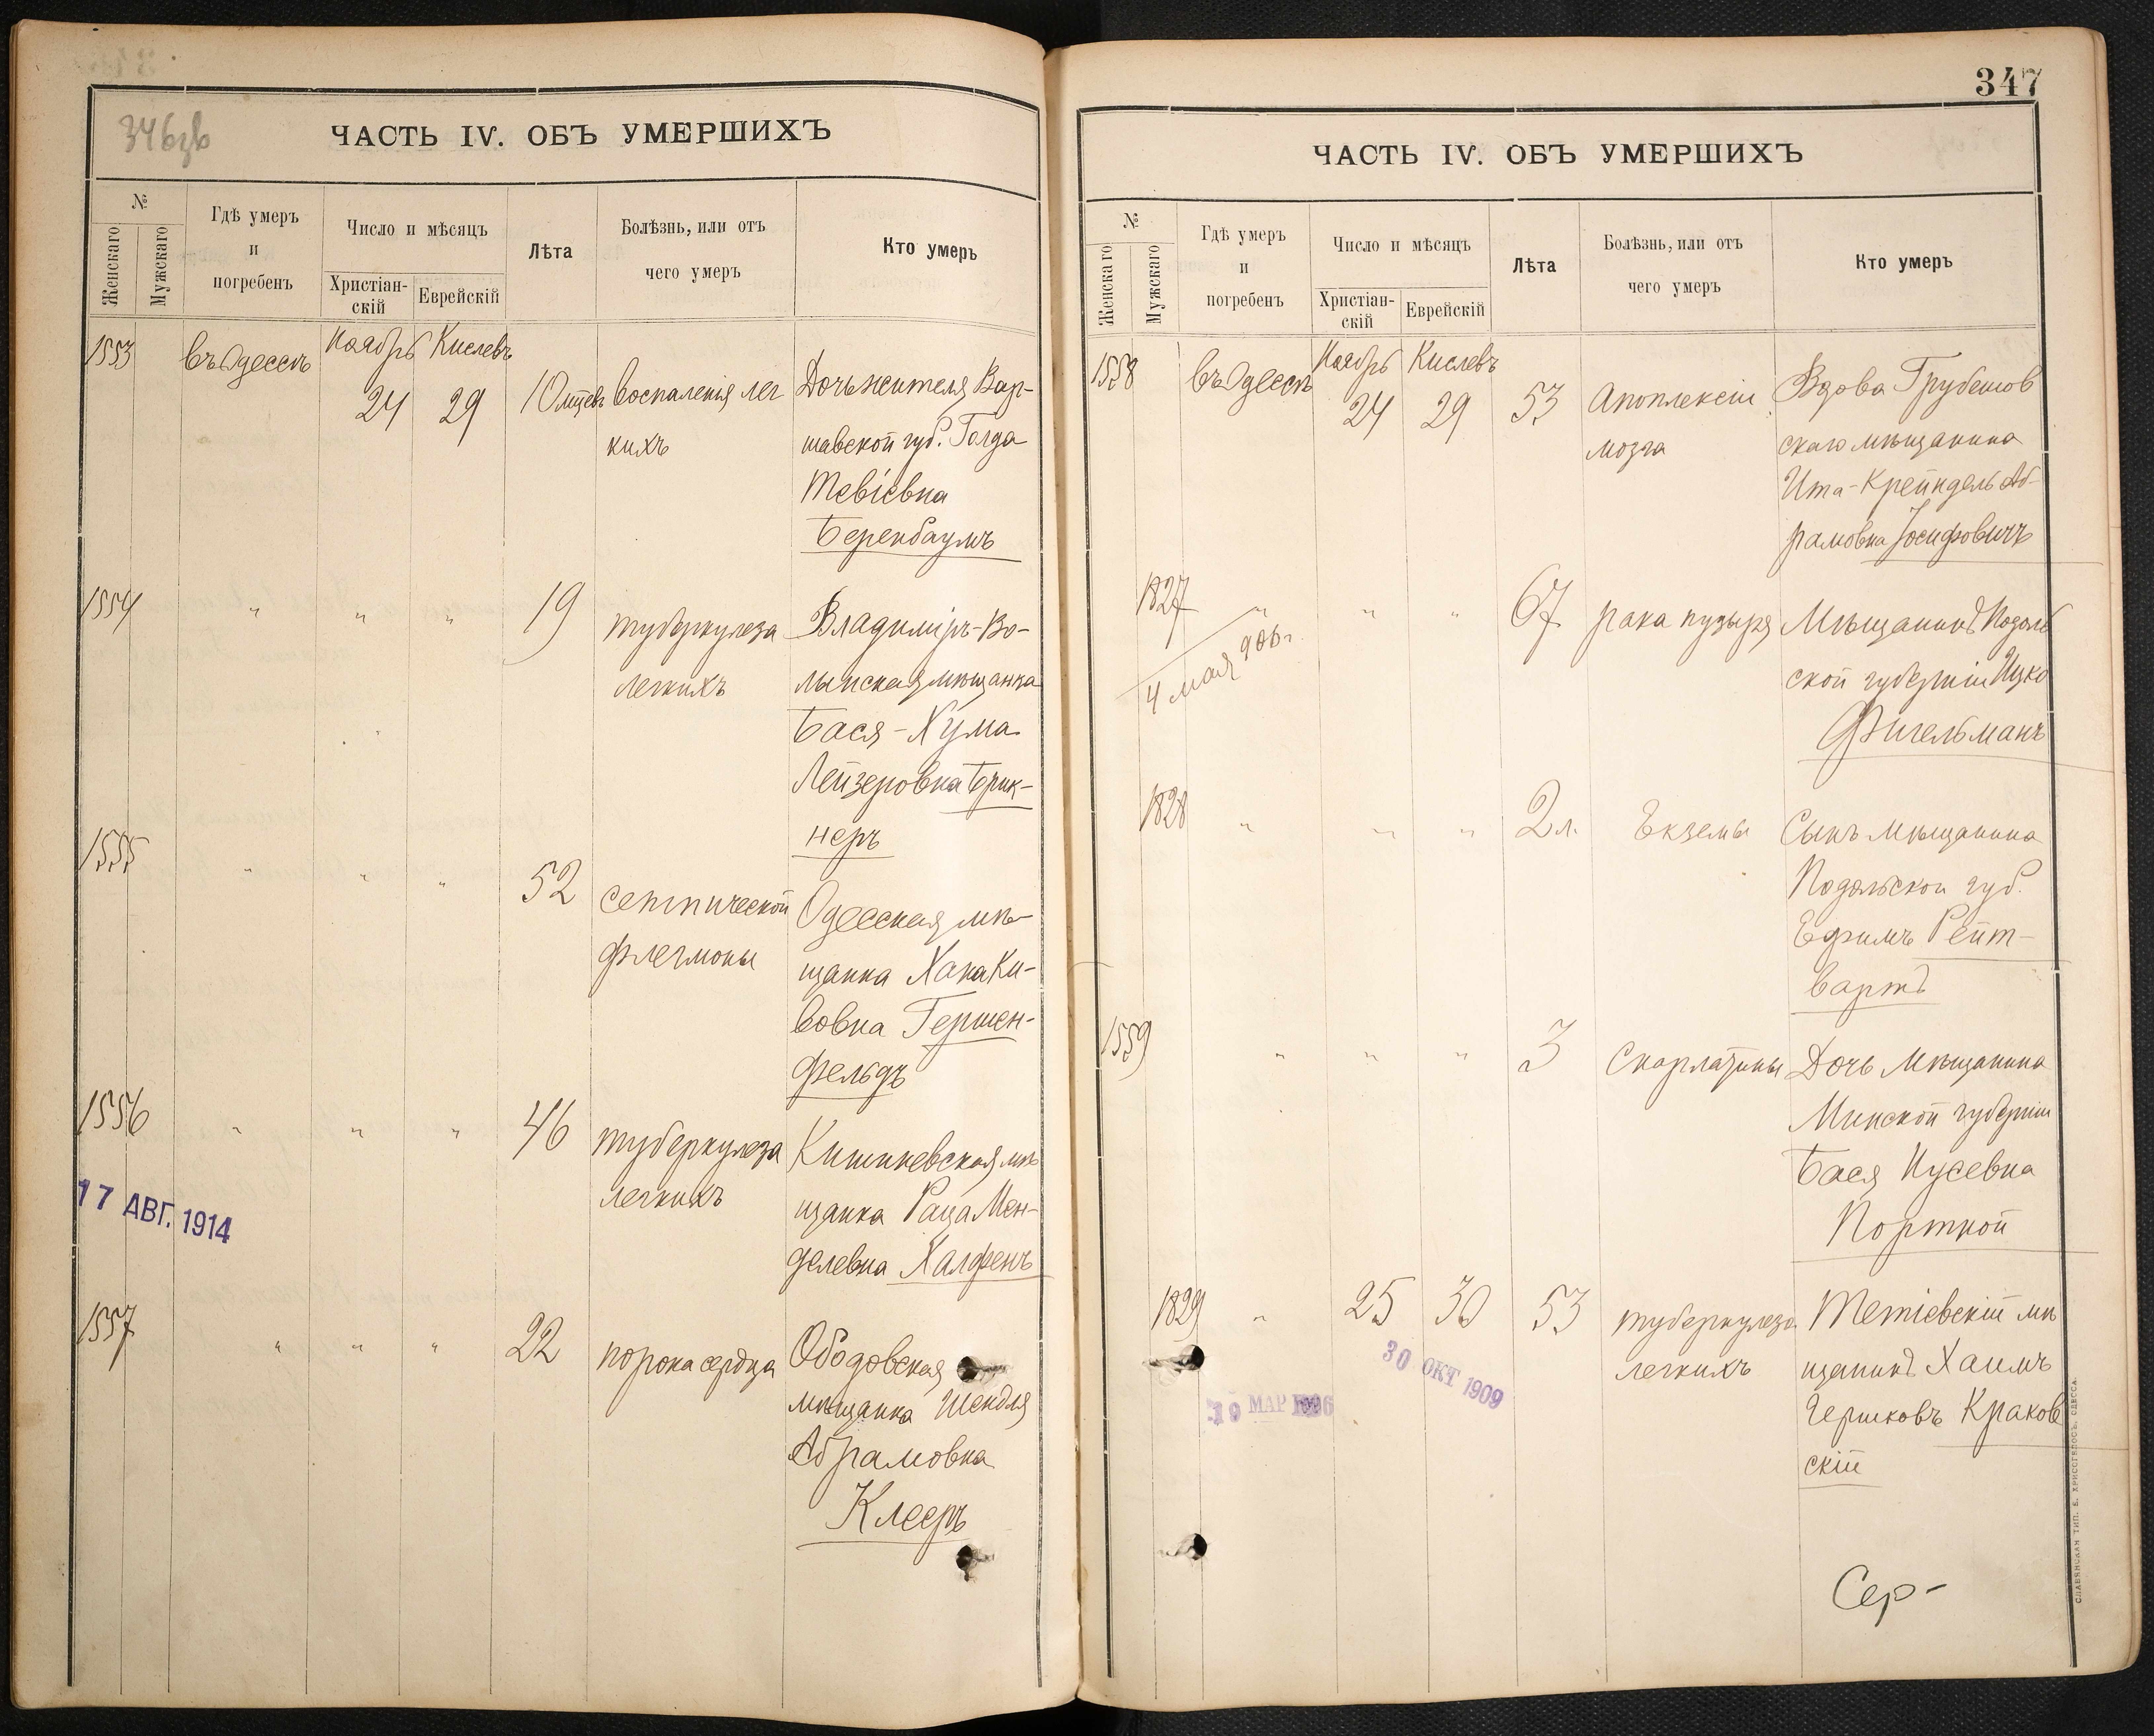 346зв
ЧАСТЬ IV. ОБЪ УМЕРШИХЪ
№
Женскаго
Мужскаго
Гдѣ умеръ
и
погребенъ
Число и мѣсяцъ
Христіан-
скій
Еврейскій
Лѣта
Болѣзнь, или отъ
чего умеръ
Кто умеръ
1553
въ Одессѣ
Ноябрь
24
Кислевъ
29
10 мѣсяц
Воспаленія лег
кихъ
Дочь жителя Вар-
шавской губ. Голда
Тевіевна
Беренбаумъ
1554
" " "
19
туберкулеза
легкихъ
Владиміръ-Во-
лынская мѣщанка
Бася-Хума
Лейзеровна Брик-
неръ
1555
" " "
52
септической
флегмоны
Одесская мѣ-
щанка Хана Ки-
вовна Гершен-
фельдъ
1556
" " "
46
туберкулеза
легкихъ
Кишиневская мѣ
щанка Раца Мен-
делевна Халфенъ
17 АВГ. 1914
1557
" " "
22
порока сердца
Ободовская
мѣщанка Шендля
Абрамовна
Клееръ
347
ЧАСТЬ IV. ОБЪ УМЕРШИХЪ
№
Женскаго
Мужскаго
Гдѣ умеръ
и
погребенъ
Число и мѣсяцъ
Христіан-
скій
Еврейскій
Лѣта
Болѣзнь, или отъ
чего умеръ
Кто умеръ
1558
въ Одессѣ
Ноябрь
24
Кислевъ
29
53
Апоплексіи
мозга
Вдова Грубешов
скаго мѣщанина
Ита-Крейндель Аб-
рамовна Іосифовичъ
1827
4 мая 906 г.
" " "
67
рака пузыря
Мѣщанинъ Подоль
ской губерніи Ицко
Фигельманъ
1828
" " "
2 л.
Екземы
Сынъ мѣщанина
Подольской губ.
Ефимъ Рейт-
вартъ
1559
" " "
3
Скарлатины
Дочь мѣщанина
Минской губерніи
Бася Нусевна
Портной
1829
"
25
30
53
туберкулеза
легкихъ
Тетіевскій мѣ
щанинъ Хаимъ
Гершковъ Краков
скій
30 ОКТ 1909
19 МАР
Сер-
СЛАВЯНСКАЯ ТИП. Е. ХРИСОГЕЛОСЪ, ОДЕССА.